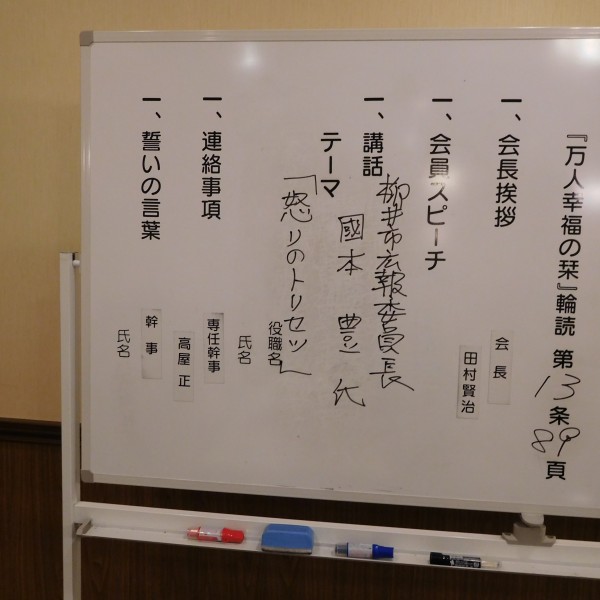 『万人幸福の栞』輪読 第13条89頁
一、会長挨拶
会長
一、会員スピーチ
田村賢治
一、講話
柳井市広報委員長
國本 豊 氏
テーマ
「怒りのトリセツ」
役職名
氏名
一、連絡事項
専任幹事
高屋 正
一、誓いの言葉
幹事
氏名